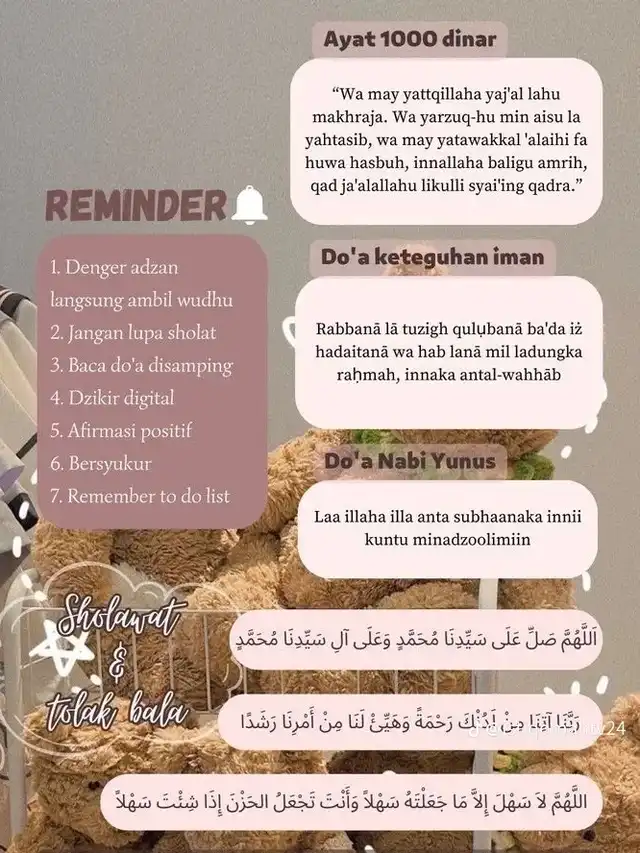 Ayat 1000 dinar
“Wa may yattqillaha yaj'al lahu
makhraja. Wa yarzuq-hu min aisu la
yahtasib, wa may yatawakkal 'alaihi fa
huwa hasbuh, innallaha baligu amrih,
qad ja'alallahu likulli syai'ing qadra.”
REMINDER
1. Denger adzan
langsung ambil wudhu
2. Jangan lupa sholat
3. Baca do'a disamping
4. Dzikir digital
5. Afirmasi positif
6. Bersyukur
7. Remember to do list
Do'a keteguhan iman
Rabbanā lā tuzigh qulụbanā ba'da iż
hadaitanā wa hab lanā mil ladungka
raḥmah, innaka antal-wahhāb
Do'a Nabi Yunus
Laa illaha illa anta subhaanaka innii
kuntu minadzoolimiin
Sholawat
&
tolak bala
اَللَّهُمَّ صَلِّ عَلَى سَيِّدِنَا مُحَمَّدٍ وَعَلَى آلِ سَيِّدِنَا مُحَمَّدٍ
رَبَّنَا آتِنَا مِنْ لَدُنْكَ رَحْمَةً وَهَيِّئْ لَنَا مِنْ أَمْرِنَا رَشَدًا
اللَّهُمَّ لاَ سَهْلَ إِلاَّ مَا جَعَلْتَهُ سَهْلاً وَأَنْتَ تَجْعَلُ الحَزْنَ إِذَا شِئْتَ سَهْلاً